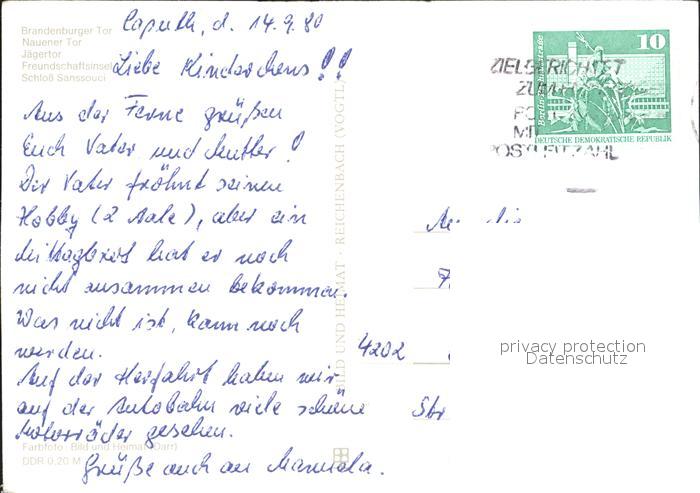 Brandenburger Tor
Nauener Tor
Jägertor
Freundschaftsinsel
Schloß Sanssouci
Caputh, d. 14.9.80
Liebe Kinderchens!!
Aus der Ferne grüßen
Euch Vater und Mutter!
Der Vater fröhnt seinen
Hobby (2 Aale), aber ein
Mittagbrot hat er noch
nicht zusammen bekommen.
Was nicht ist, kann noch
werden.
Auf der Herfahrt haben wir
auf der Autobahn viele schöne
Motorräder gesehen.
Grüße auch an Manuela.
Farbfoto: Bild und Heimat (Darr)
DDR 0,20 M
BILD UND HEIMAT · REICHENBACH (VOGTL)
10
DEUTSCHE DEMOKRATISCHE REPUBLIK
ZIELGERICHTET
ZUM
POST
MIT
POSTLEITZAHL
4202
Str
privacy protection
Datenschutz